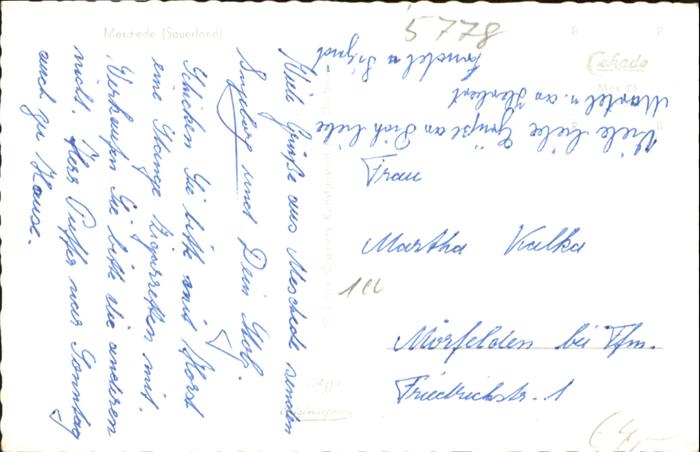 Meschede (Sauerland)
5778
Cekade
Viele Grüße aus Meschede senden
Ingeborg und Dein
Schicken Sie bitte mit Horst
eine Stange Zigaretten mit.
Verkaufen Sie bitte die anderen
nicht. Herr war Sonntag
auch zu Hause.
Viele liebe Grüße an Dich liebe
Martel u. an Herbert
u. Sigrid
Frau
Martha Kalka
Mörfelden bei Ffm.
Friedrichstr. 1